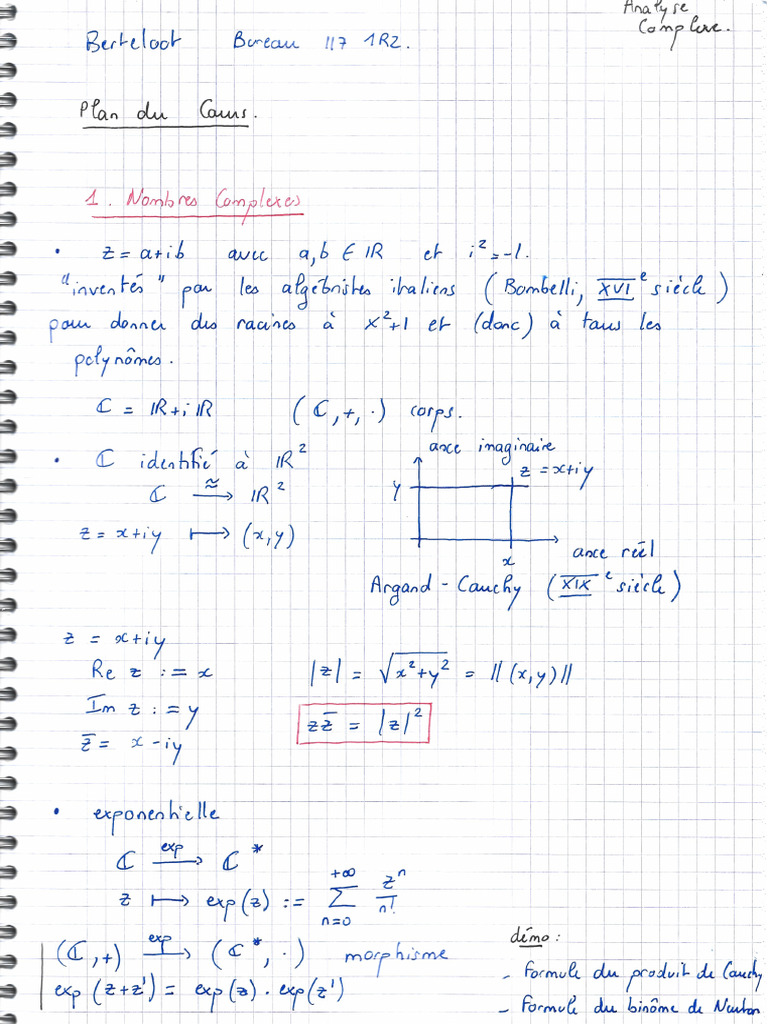 Analyse
Complexe.
Berteloot Bureau 117 1R2.
Plan du Cours.
1. Nombres Complexes
• z = a+ib avec a,b ∈ ℝ et i² = -1.
"inventés" par les algébristes italiens (Bombelli, XVIᵉ siècle)
pour donner des racines à x²+1 et (donc) à tous les
polynômes.
ℂ = ℝ+iℝ (ℂ,+,·) corps.
• ℂ identifié à ℝ²
ℂ ≈⟶ ℝ²
z = x+iy ⟼ (x,y)
axe imaginaire
z = x+iy
y
x
axe réel
Argand-Cauchy (XIXᵉ siècle)
z = x+iy
Re z := x |z| = √(x²+y²) = ||(x,y)||
Im z := y
z̄ = x-iy z z̄ = |z|²
• exponentielle
ℂ exp⟶ ℂ*
z ⟼ exp(z) := +∞ Σ n=0 zⁿ/n!
(ℂ,+) exp⟶ (ℂ*,·) morphisme
exp(z+z') = exp(z)·exp(z')
démo:
- Formule du produit de Cauchy
- Formule du binôme de Newton